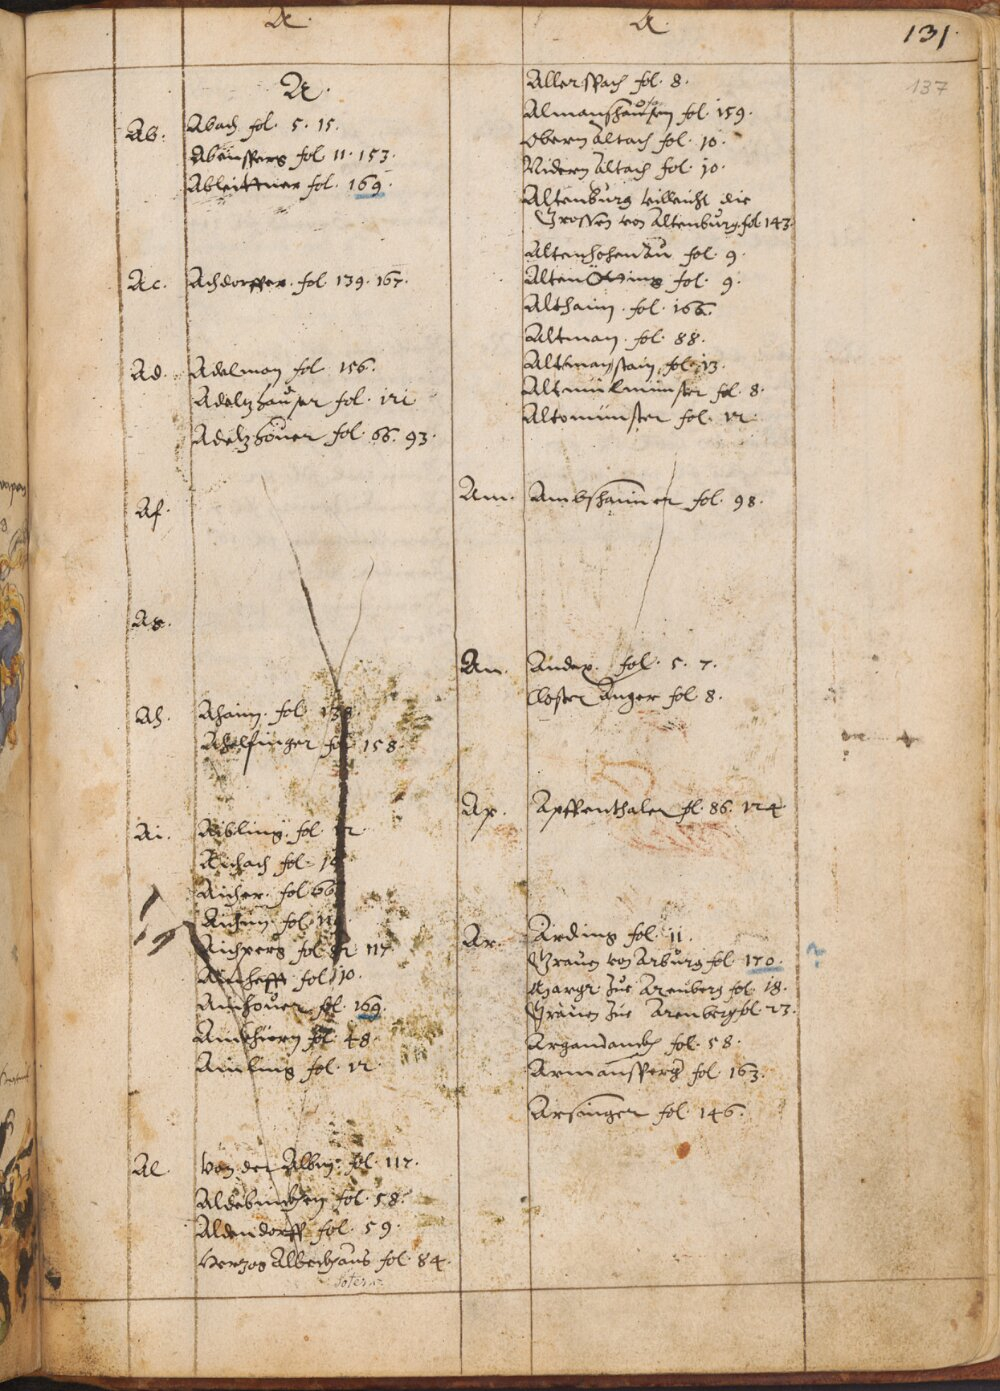 A.
A.
131.
137
A.
Ab. Abach fol. 5. 15.
Abensperg fol 11. 153.
Ableittner fol. 169.
Ac. Achdorffer. fol 139. 167.
Ad. Adelman fol 156.
Adeltzhauser fol. 121
Adeltzhouer fol. 66. 93.
Af.
Ag.
Ah. Ahaim. fol.
Ahelfinger fol 158.
Ai. Aibling. fol.
Aichach fol.
Aicher. fol 66
fol.
Aichperg fol 117
fol 10.
Ainhouer fol. 169.
fol. 48.
Ainling fol. 12.
Al. Von der Albm. fol. 117.
fol. 58.
Aldendorff fol. 59.
Hertzog Albrechts fol. 84.
Allerspach fol. 8.
Almanshausen fol. 159.
Obern Altach fol. 10.
Nidern Altach fol. 10.
Altenburg villeicht die
Grossen von Altenburg. fol 143.
Altenhohenau fol. 9.
Altenötting fol. 9.
Althaim. fol. 166.
Altman. fol. 88.
fol. 13.
Altmülmünster fol. 8.
Altomünster fol. 12.
Am. Ambshaimer fol. 98.
An. Andex. fol. 5. 7.
Closter Anger fol 8.
Ap. Apffenthaler fol. 86. 124
Ar. Arding fol. 11.
Grauen von Arburg fol 170.
?
Margr. zue Arenberg fol. 18.
Grauen zue Arenberg fol. 23.
fol. 58.
Armansperg fol 163.
Arsinger fol. 146.